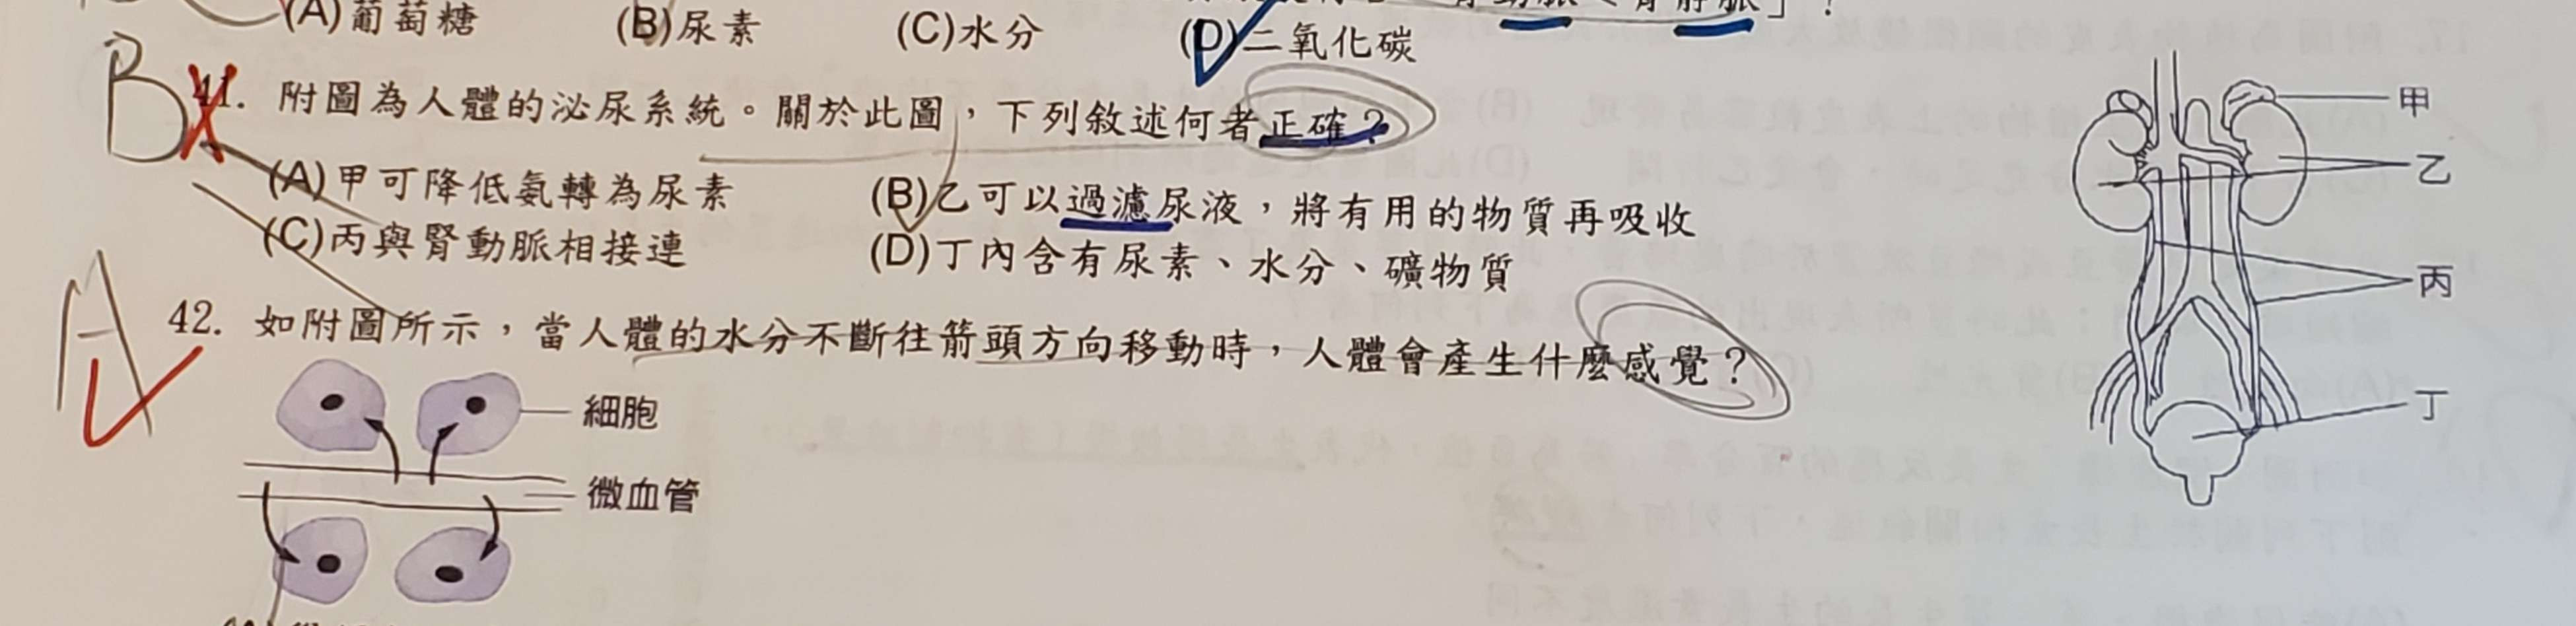 (A)葡萄糖 (B)尿素 (C)水分 (D)二氧化碳
B 41. 附圖為人體的泌尿系統。關於此圖，下列敘述何者正確？
(A)甲可降低氨轉為尿素 (B)乙可以過濾尿液，將有用的物質再吸收
(C)丙與腎動脈相接連 (D)丁內含有尿素、水分、礦物質
甲
乙
丙
丁
A 42. 如附圖所示，當人體的水分不斷往箭頭方向移動時，人體會產生什麼感覺？
細胞
微血管